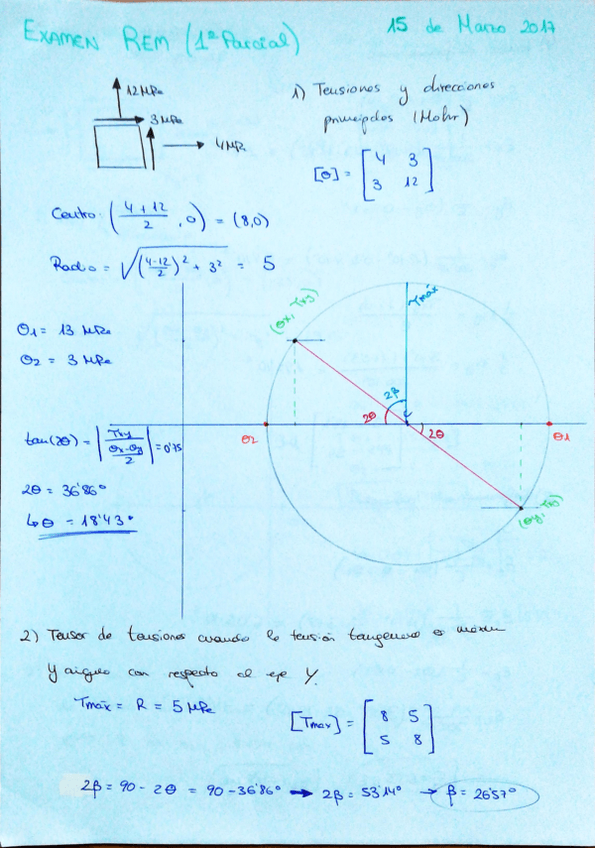 EXAMEN REM (1º Parcial)
15 de Marzo 2017
12 MPa
3 MPa
4 MPa
1) Tensiones y direcciones
principales (Mohr)
[σ] = [4 3
3 12]
Centro: ((4+12)/2 , 0) = (8,0)
Radio = √(((4-12)/2)² + 3²) = 5
σ1 = 13 MPa
σ2 = 3 MPa
tan(2θ) = |τxy / ((σx-σy)/2)| = 0'75
2θ = 36'86°
↳ θ = 18'43°
(σx, τxy)
τmáx
2β
2θ
C
2θ
σ2
σ1
(σy, τxy)
2) Tensor de tensiones cuando la tensión tangencial es máxima
y ángulo con respecto al eje Y.
τmáx = R = 5 MPa
[τmax] = [8 5
5 8]
2β = 90 - 2θ = 90 - 36'86° → 2β = 53'14° → β = 26'57°